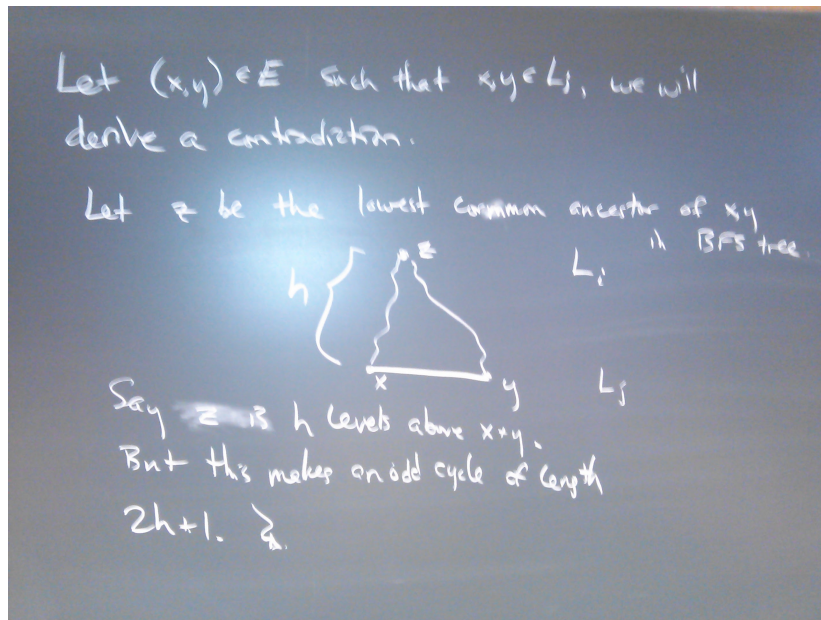 Let (x,y) ∈ E such that x,y ∈ Lj, we will
derive a contradiction.
Let z be the lowest common ancestor of x,y
in BFS tree.
h z Li
x y Lj
Say z is h levels above x+y.
But this makes an odd cycle of length
2h+1.